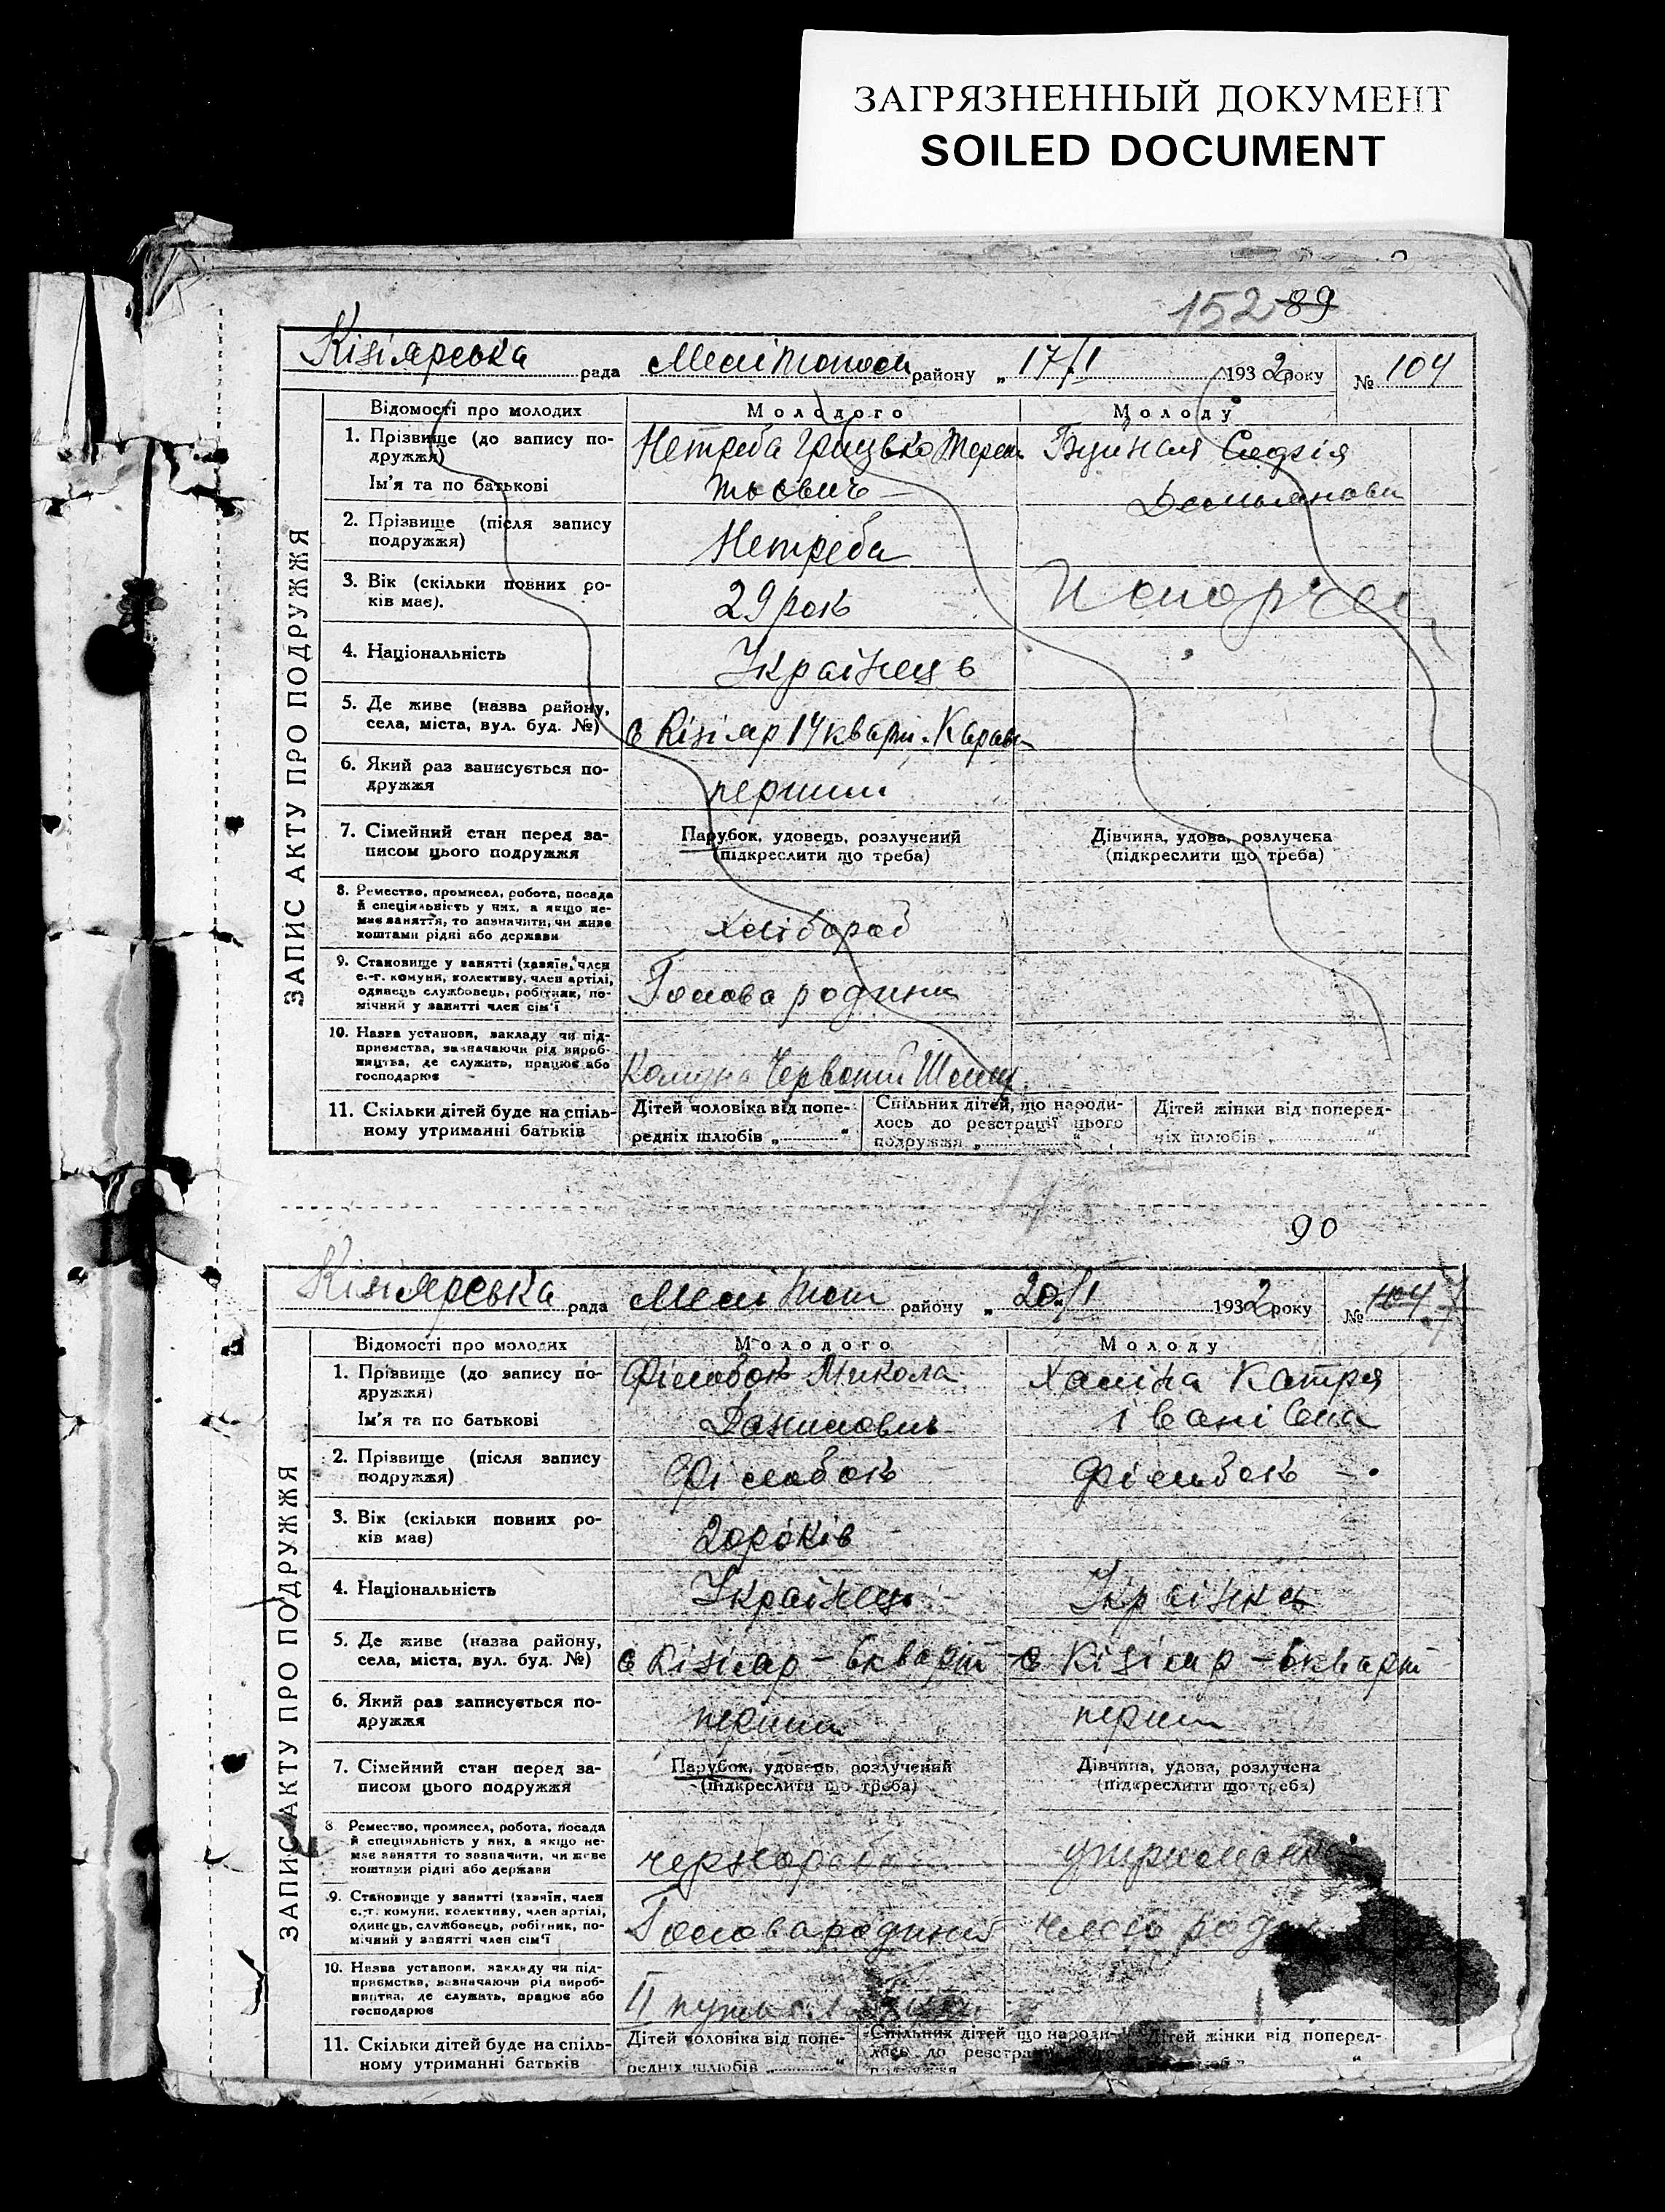 ЗАГРЯЗНЕННЫЙ ДОКУМЕНТ
SOILED DOCUMENT
152 89
Кізіярська рада Мелітопол району „ 17/I 1932 року № 104
ЗАПИС АКТУ ПРО ПОДРУЖЖЯ
Відомості про молодих Молодого Молоду
1. Прізвище (до запису по- Нетреба Грицько Терен
дружжя)
Ім'я та по батькові тьович Демьянови
2. Прізвище (після запису
подружжя) Нетреба
3. Вік (скільки повних ро-
ків має). 29 рок
4. Національність Українець
5. Де живе (назва району,
села, міста, вул. буд. №) с Кізіяр 14 кварт.
6. Який раз записується по-
дружжя перший
7. Сімейний стан перед за- Парубок, удовець, розлучений Дівчина, удова, розлучена
писом цього подружжя (підкреслити що треба) (підкреслити що треба)
8. Ремество, промисел, робота, посада
й спеціяльність у них, а якщо не-
має заняття, то зазначити, чи живе
коштами рідні або держави хлібороб
9. Становище у занятті (хазяїн, член
с.-г. комуни, колективу, член артілі,
одинець службовець, робітник, по-
мічний у занятті член сім'ї Голова родини
10. Назва установи, закладу чи під-
приємства, зазначаючи рід вироб-
ництва, де служить, працює або
господарює Комуна Червоний
11. Скільки дітей буде на спіль- Дітей чоловіка від попе- Спільних дітей, що народи- Дітей жінки від поперед-
ному утриманні батьків редніх шлюбів „ “ лось до реєстрації цього ніх шлюбів „ “
подружжя „ “
90
Кізіярська рада Меліtoп району „ 20/I 1932 року № 104
ЗАПИС АКТУ ПРО ПОДРУЖЖЯ
Відомості про молодих Молодого Молоду
1. Прізвище (до запису по- Філовок Микола Халіна Катря
дружжя)
Ім'я та по батькові Данилович Іванівна
2. Прізвище (після запису
подружжя)
3. Вік (скільки повних ро-
ків має) 20 років
4. Національність Українець Українка
5. Де живе (назва району,
села, міста, вул. буд. №) с Кізіяр – 6 кварт с Кізіяр – 6 кварт
6. Який раз записується по-
дружжя перший перши
7. Сімейний стан перед за- Парубок, удовець, розлучений Дівчина, удова, розлучена
писом цього подружжя (підкреслити що треба) (підкреслити що треба)
8 Ремество, промисел, робота, посада
й спеціяльність у них, а якщо не-
має заняття то зазначити, чи живе
коштами рідні або держави
9. Становище у занятті (хазяїн, член
с.-г. комуни, колективу, член артілі,
одинець, службовець, робітник, по-
мічний у занятті член сім'ї Голова родини член
10. Назва установи, закладу чи під-
приємства, зазначаючи рід вироб-
ництва, де служить, працює або
господарює II
11. Скільки дітей буде на спіль- Дітей чоловіка від попе- Спільних дітей що народи- Дітей жінки від поперед-
ному утриманні батьків редніх шлюбів „ “ лось до
подружжя